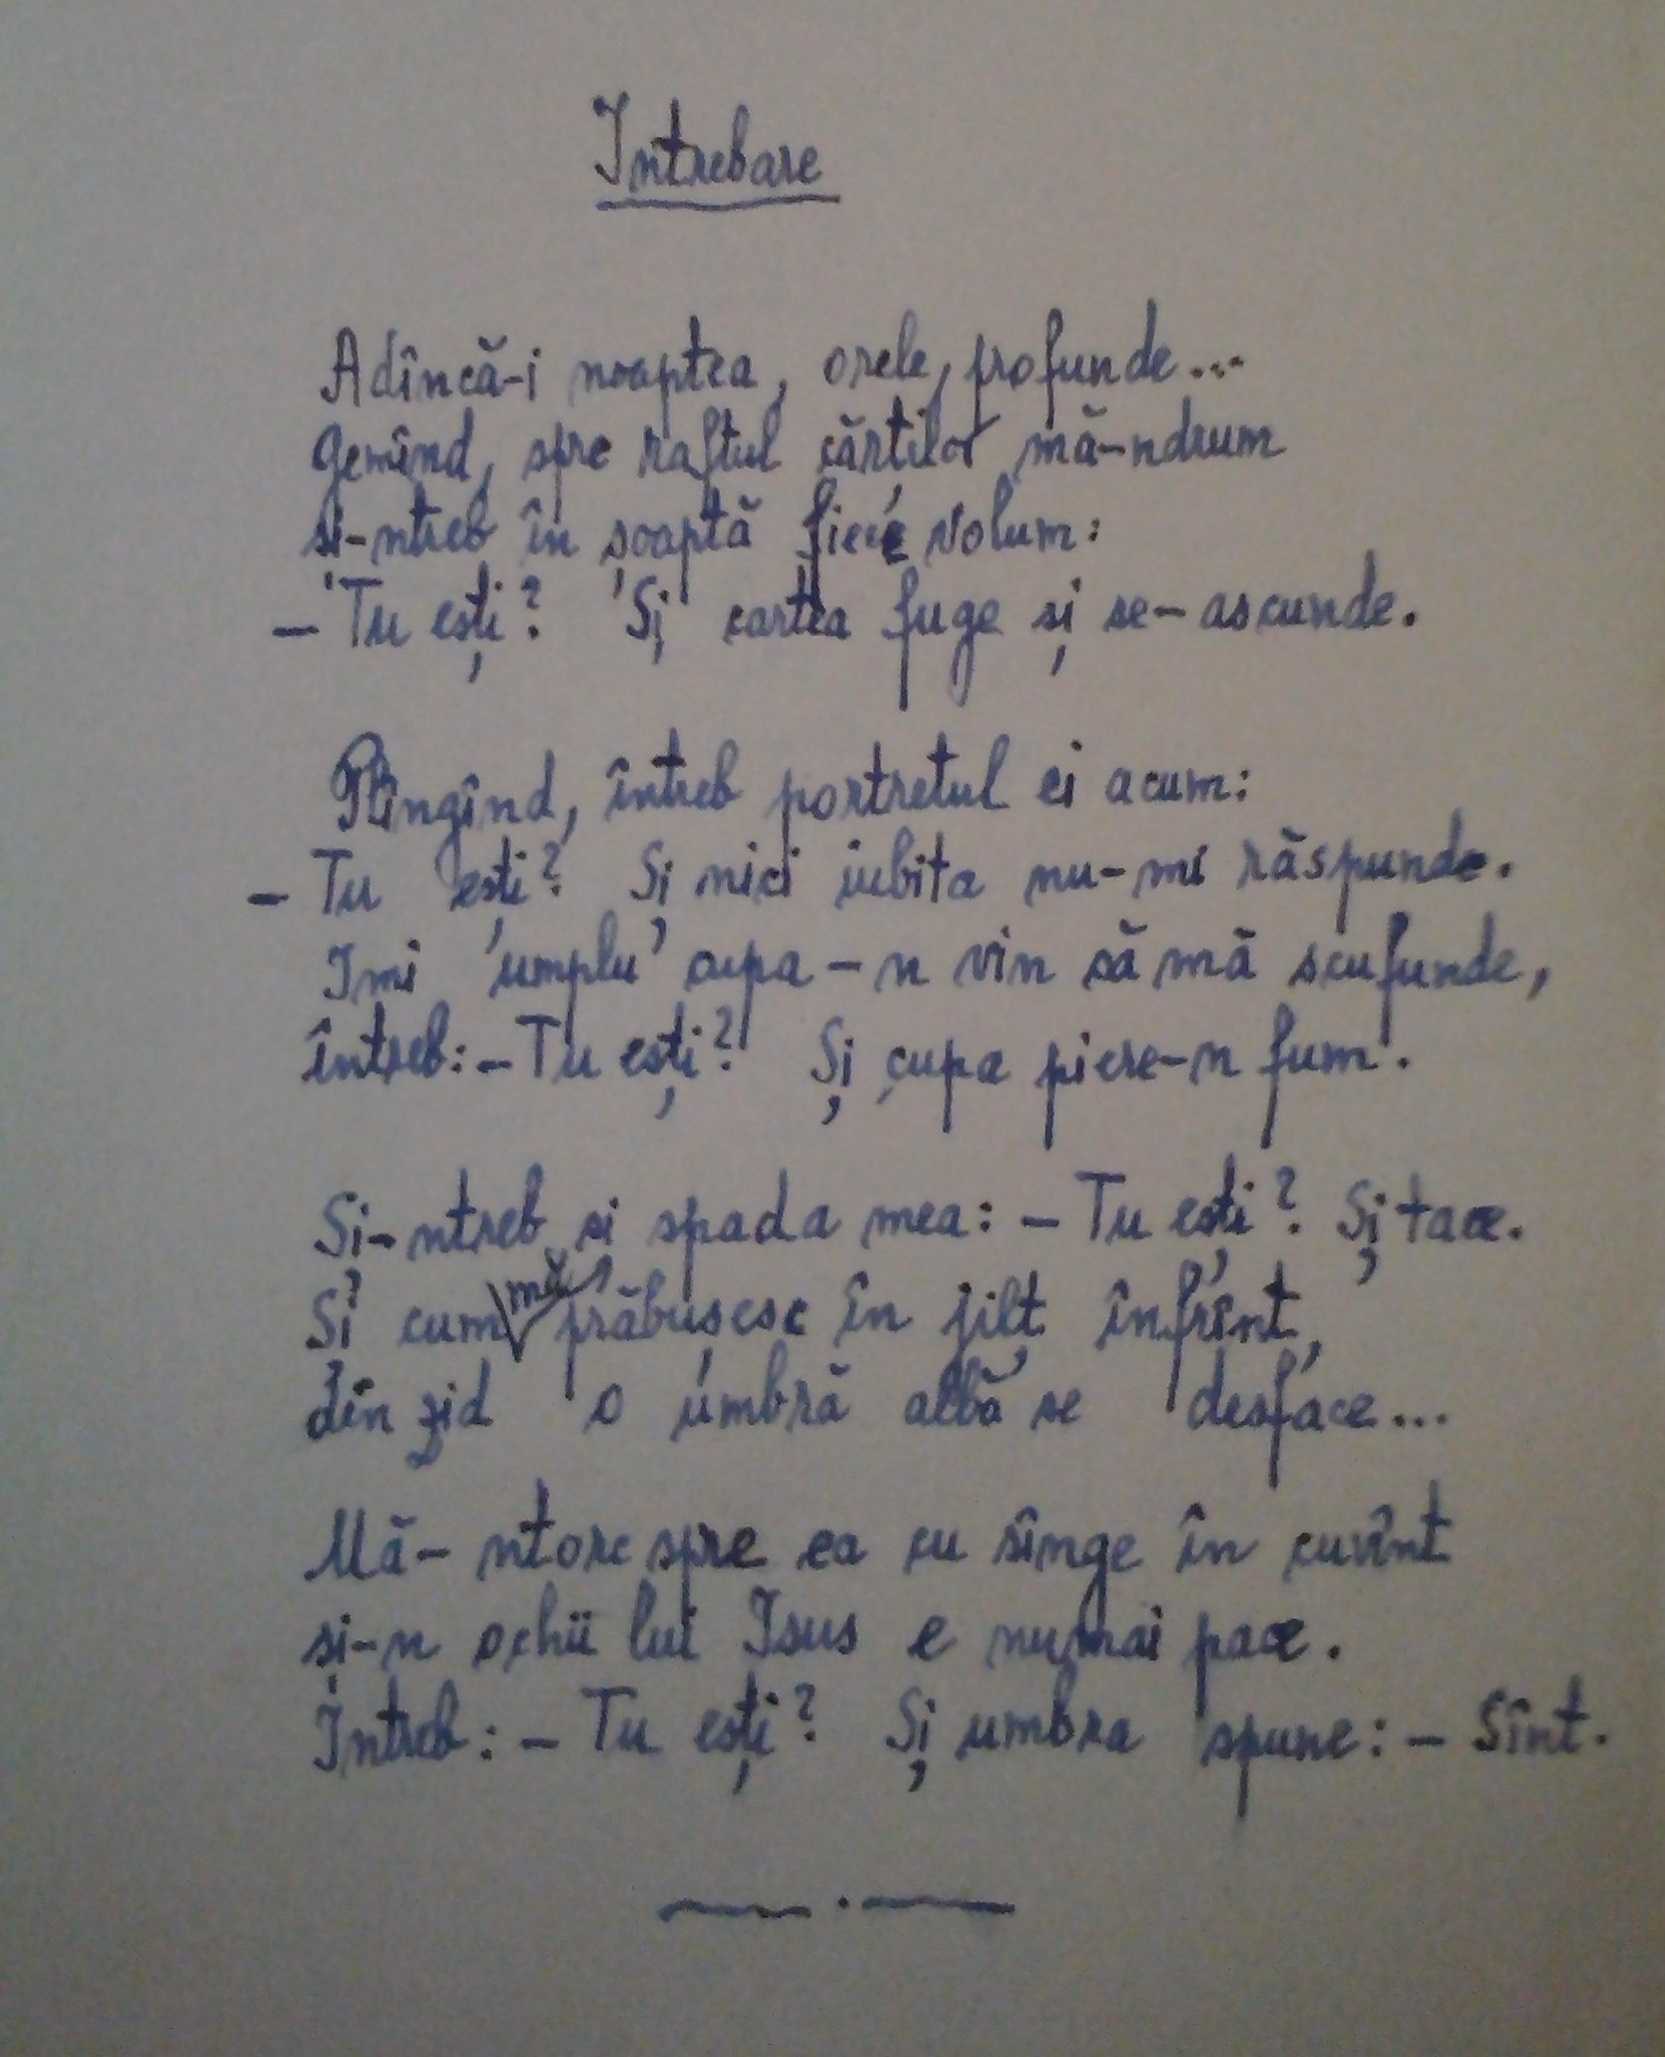 Intrebare
Adîncă-i noaptea, orele, profunde...
Gemînd, spre raftul cărților mă-ndrum
și-ntreb în șoaptă fiece volum:
- Tu ești? Și cartea fuge și se-ascunde.
Plîngînd, întreb portretul ei acum:
- Tu ești? Și nici iubita nu-mi răspunde.
Imi umplu cupa-n vin să mă scufunde,
întreb: - Tu ești? Și cupa piere-n fum.
Și-ntreb și spada mea: - Tu ești? Și tace.
Și cum mă prăbușesc în jilț înfrînt,
din zid o umbră albă se desface...
Mă-ntorc spre ea cu sînge în cuvînt
și-n ochii lui Isus e numai pace.
Intreb: - Tu ești? Și umbra spune: - Sînt.